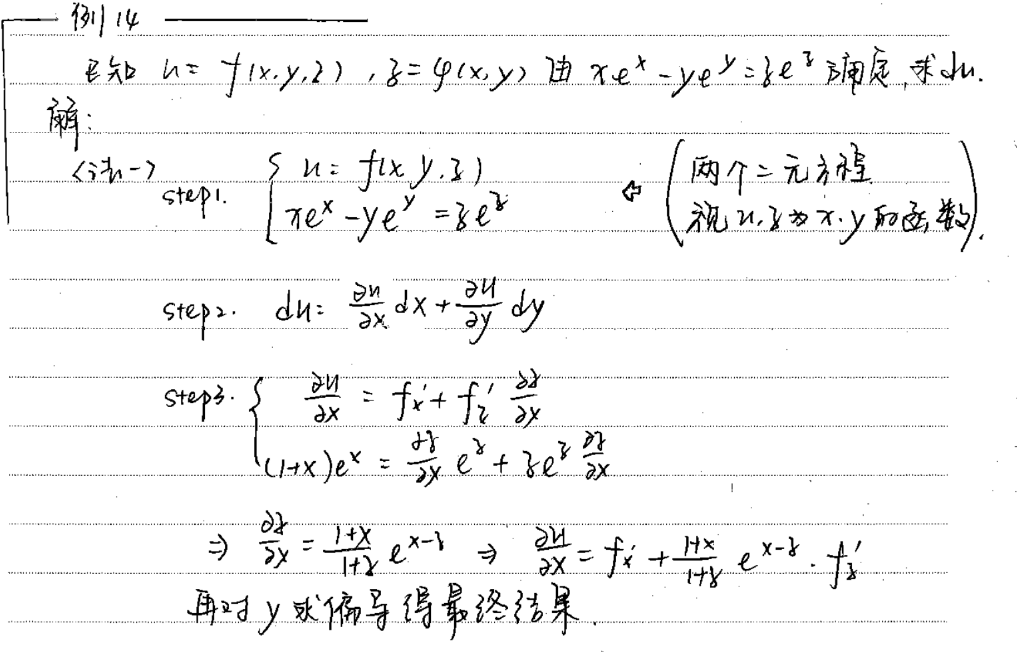 例14
已知 u = f(x,y,z), z = φ(x,y) 由 xe^x - ye^y = ze^z 确定,求du.
解:
<法一> step1. { u = f(x,y,z)
xe^x - ye^y = ze^z
⇦ (两个二元方程
视u,z为x,y的函数).
step2. du = ∂u/∂x dx + ∂u/∂y dy
step3. { ∂u/∂x = f'x + f'z ∂z/∂x
(1+x)e^x = ∂z/∂x e^z + ze^z ∂z/∂x
⇒ ∂z/∂x = (1+x)/(1+z) e^(x-z) ⇒ ∂u/∂x = f'x + (1+x)/(1+z) e^(x-z) · f'z
再对y求偏导得最终结果.